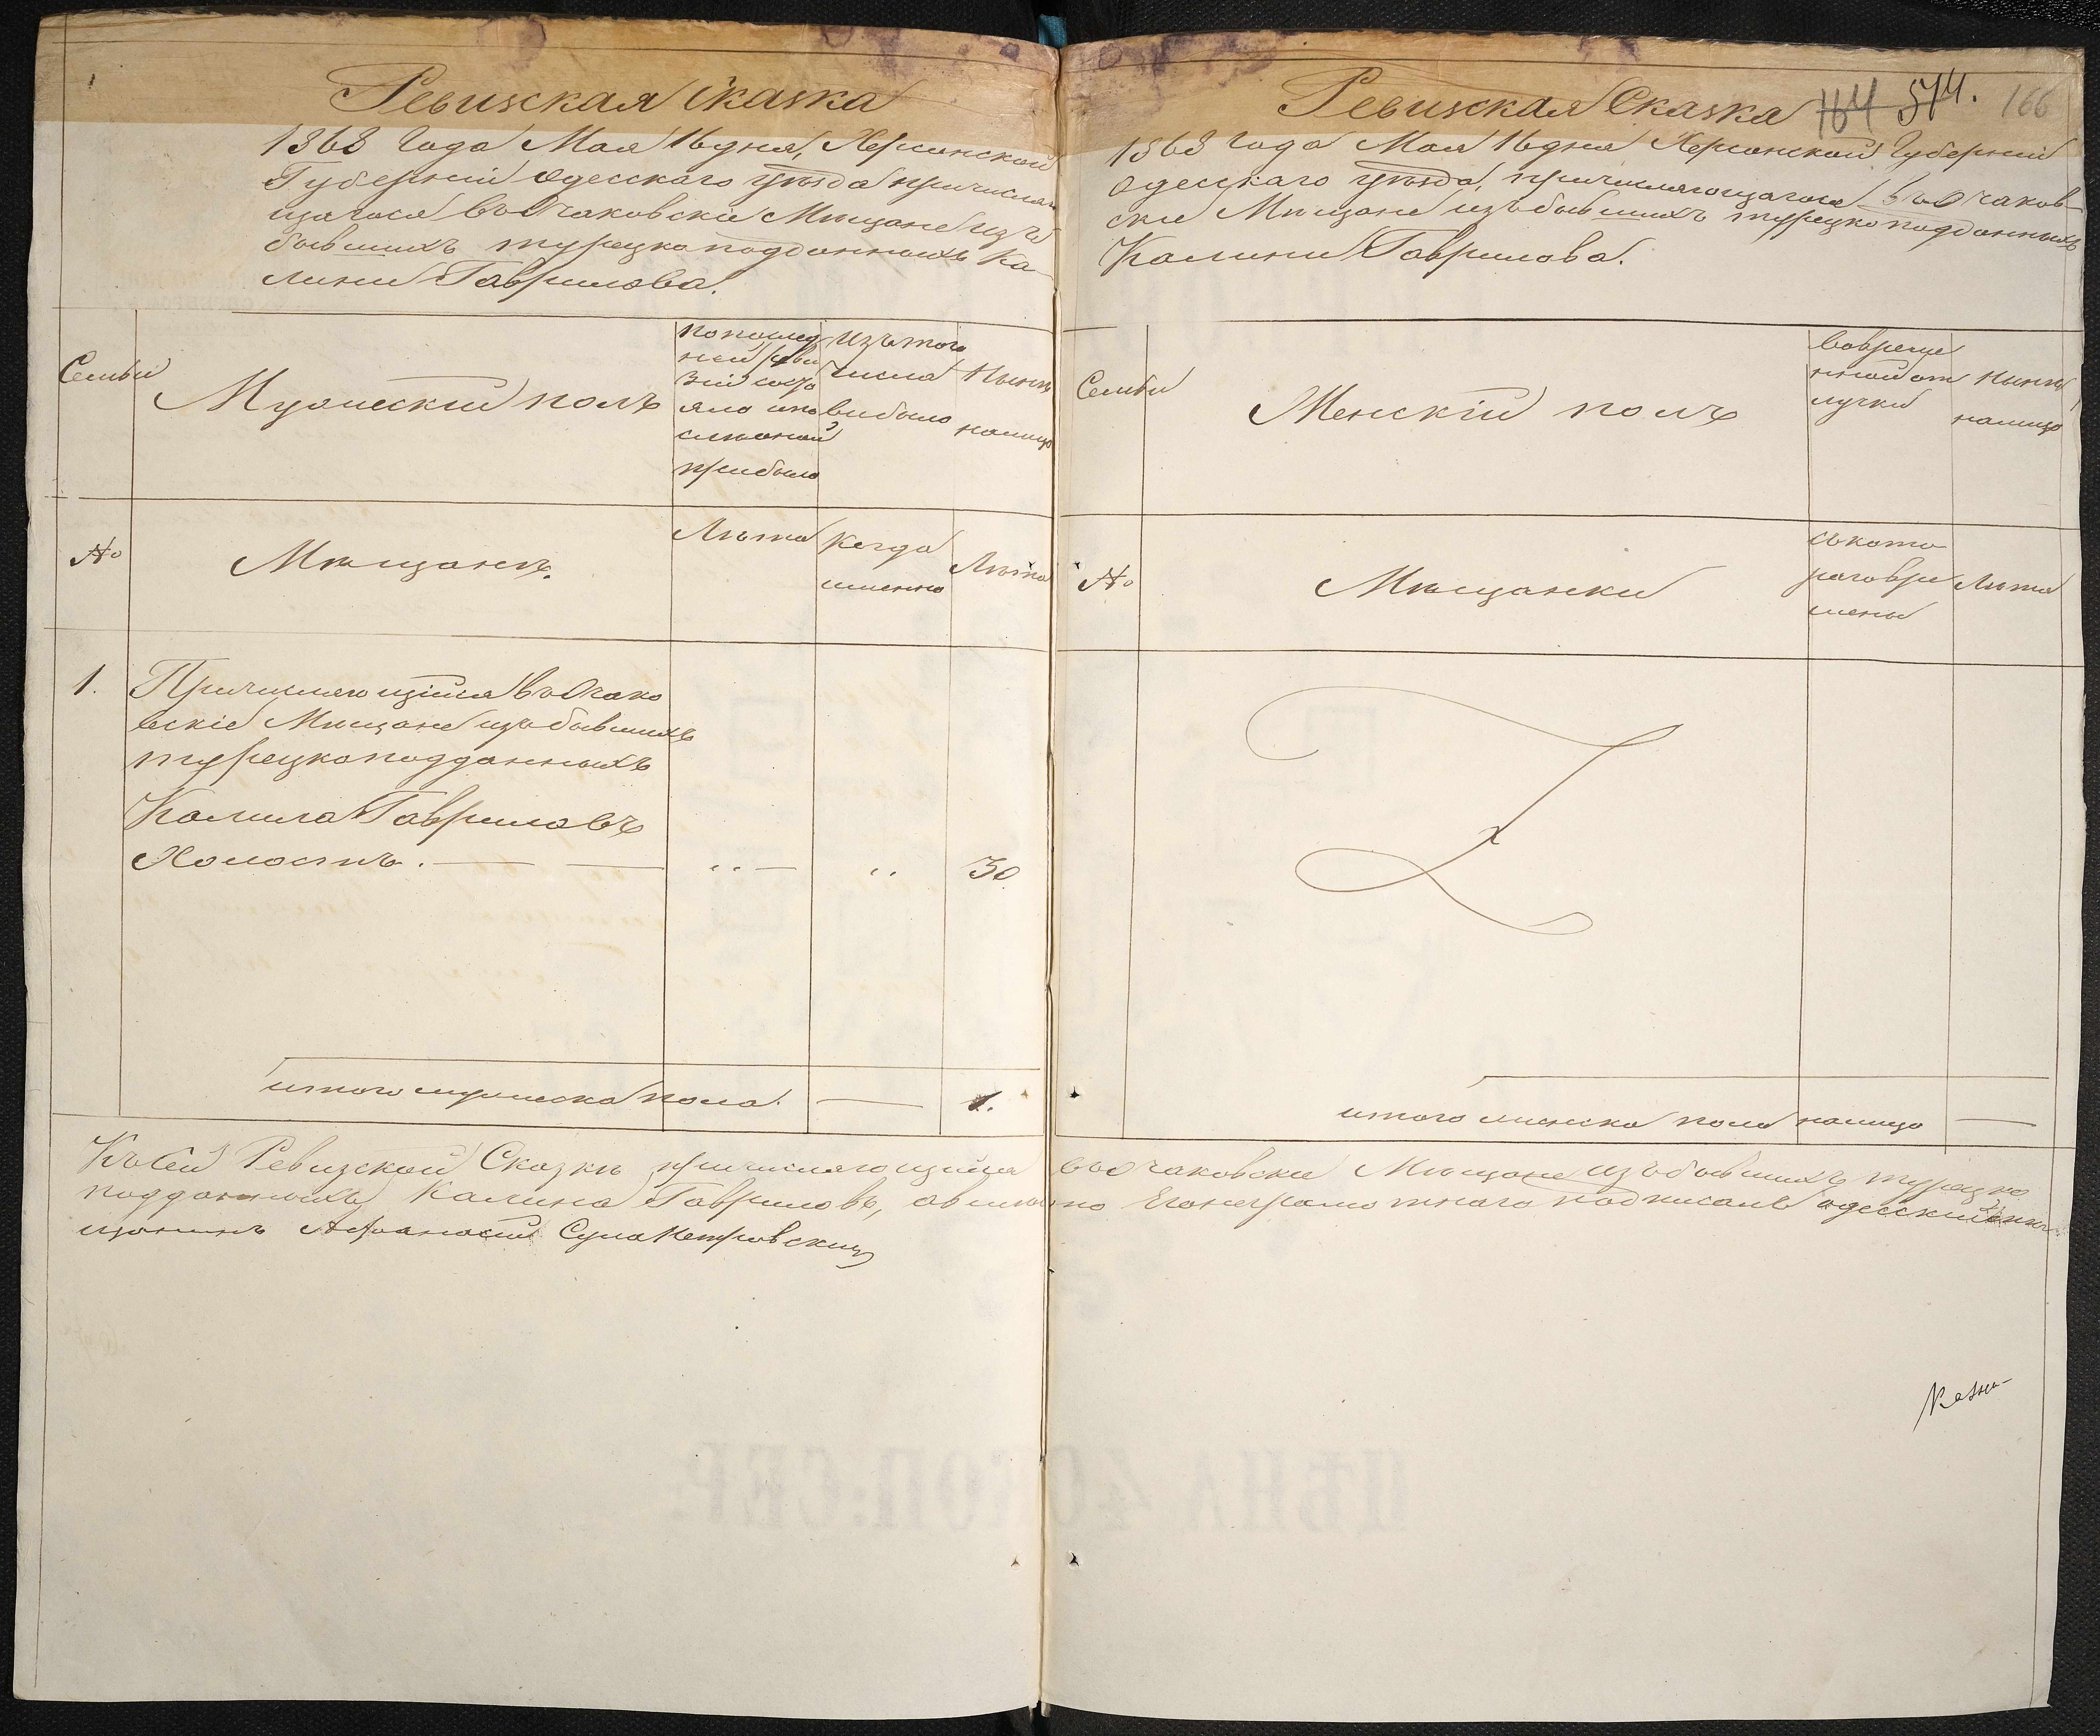 Ревизская Сказка
1868 года Мая 16 дня, Херсонской
Губерніи Одесскаго уѣзда причисляю
щагося въ Очаковскіе Мѣщане изъ
бывшихъ турецкоподданныхъ Ка-
лини Гаврилова.
Семьи
Мужескій полъ
По послед
ней реви
зіи состо
яло или
послѣ оной
прибыло
Изъ того
числа
выбыло
Нынѣ
налицо
№
Мѣщанъ.
Лѣта
Когда
именно
Лѣта
1.
Причисляющійся въ Очако
вскіе Мѣщане изъ бывшихъ
турецкоподданныхъ
Калина Гавриловъ
Холостъ. — — „ — „ 30
итого мужеска пола. — 1.
Ревизская Сказка
164 514. 166
1868 года Мая 16 дня Херсонской Губерніи
Одесскаго уѣзда, причисляющагося въ Очаков-
скіе Мѣщане изъ бывшихъ турецкоподданныхъ
Калини Гаврилова.
Семьи
Женскій полъ
Во време
нной от
лучки
Нынѣ
налицо
№
Мѣщанки
Съ кото
раго вре
мены
Лѣта
итого женска пола налицо —
Къ сей Ревизской Сказкѣ причисляющійся въ Очаковскіе Мѣщане изъ бывшихъ турецко
подданныхъ Калина Гавриловъ, а вмѣсто его неграмотнаго подписалъ Одесскій мѣ
щанинъ Афанасій
ЦѢНА 40 КОП: СЕР.